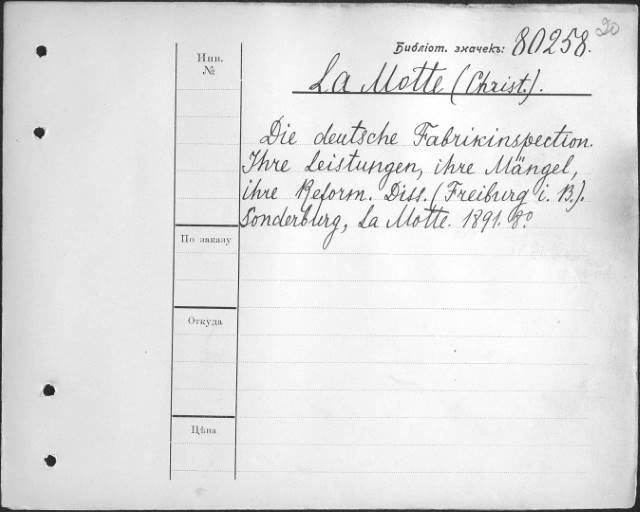 20
Библіот. значекъ: 80258.
Инв.
№
La Motte (Christ.).
Die deutsche Fabrikinspection.
Ihre Leistungen, ihre Mängel,
ihre Reform. Diss. (Freiburg i. B.).
Sonderburg, La Motte. 1891. 8º.
По заказу
Откуда
Цѣна